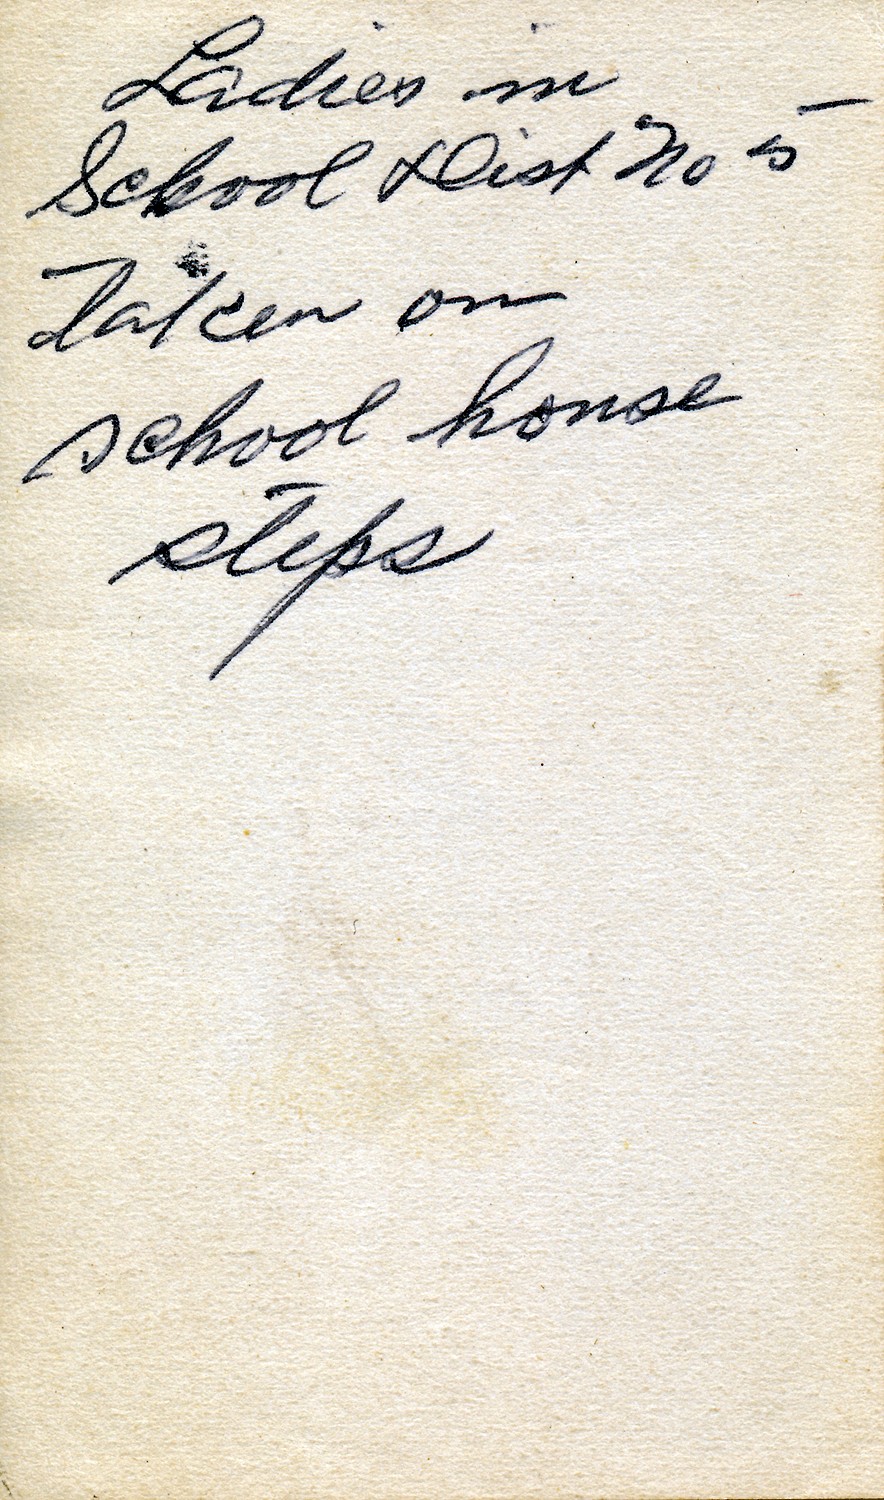 Ladies in
School Dist No 5
Taken on
school house
steps